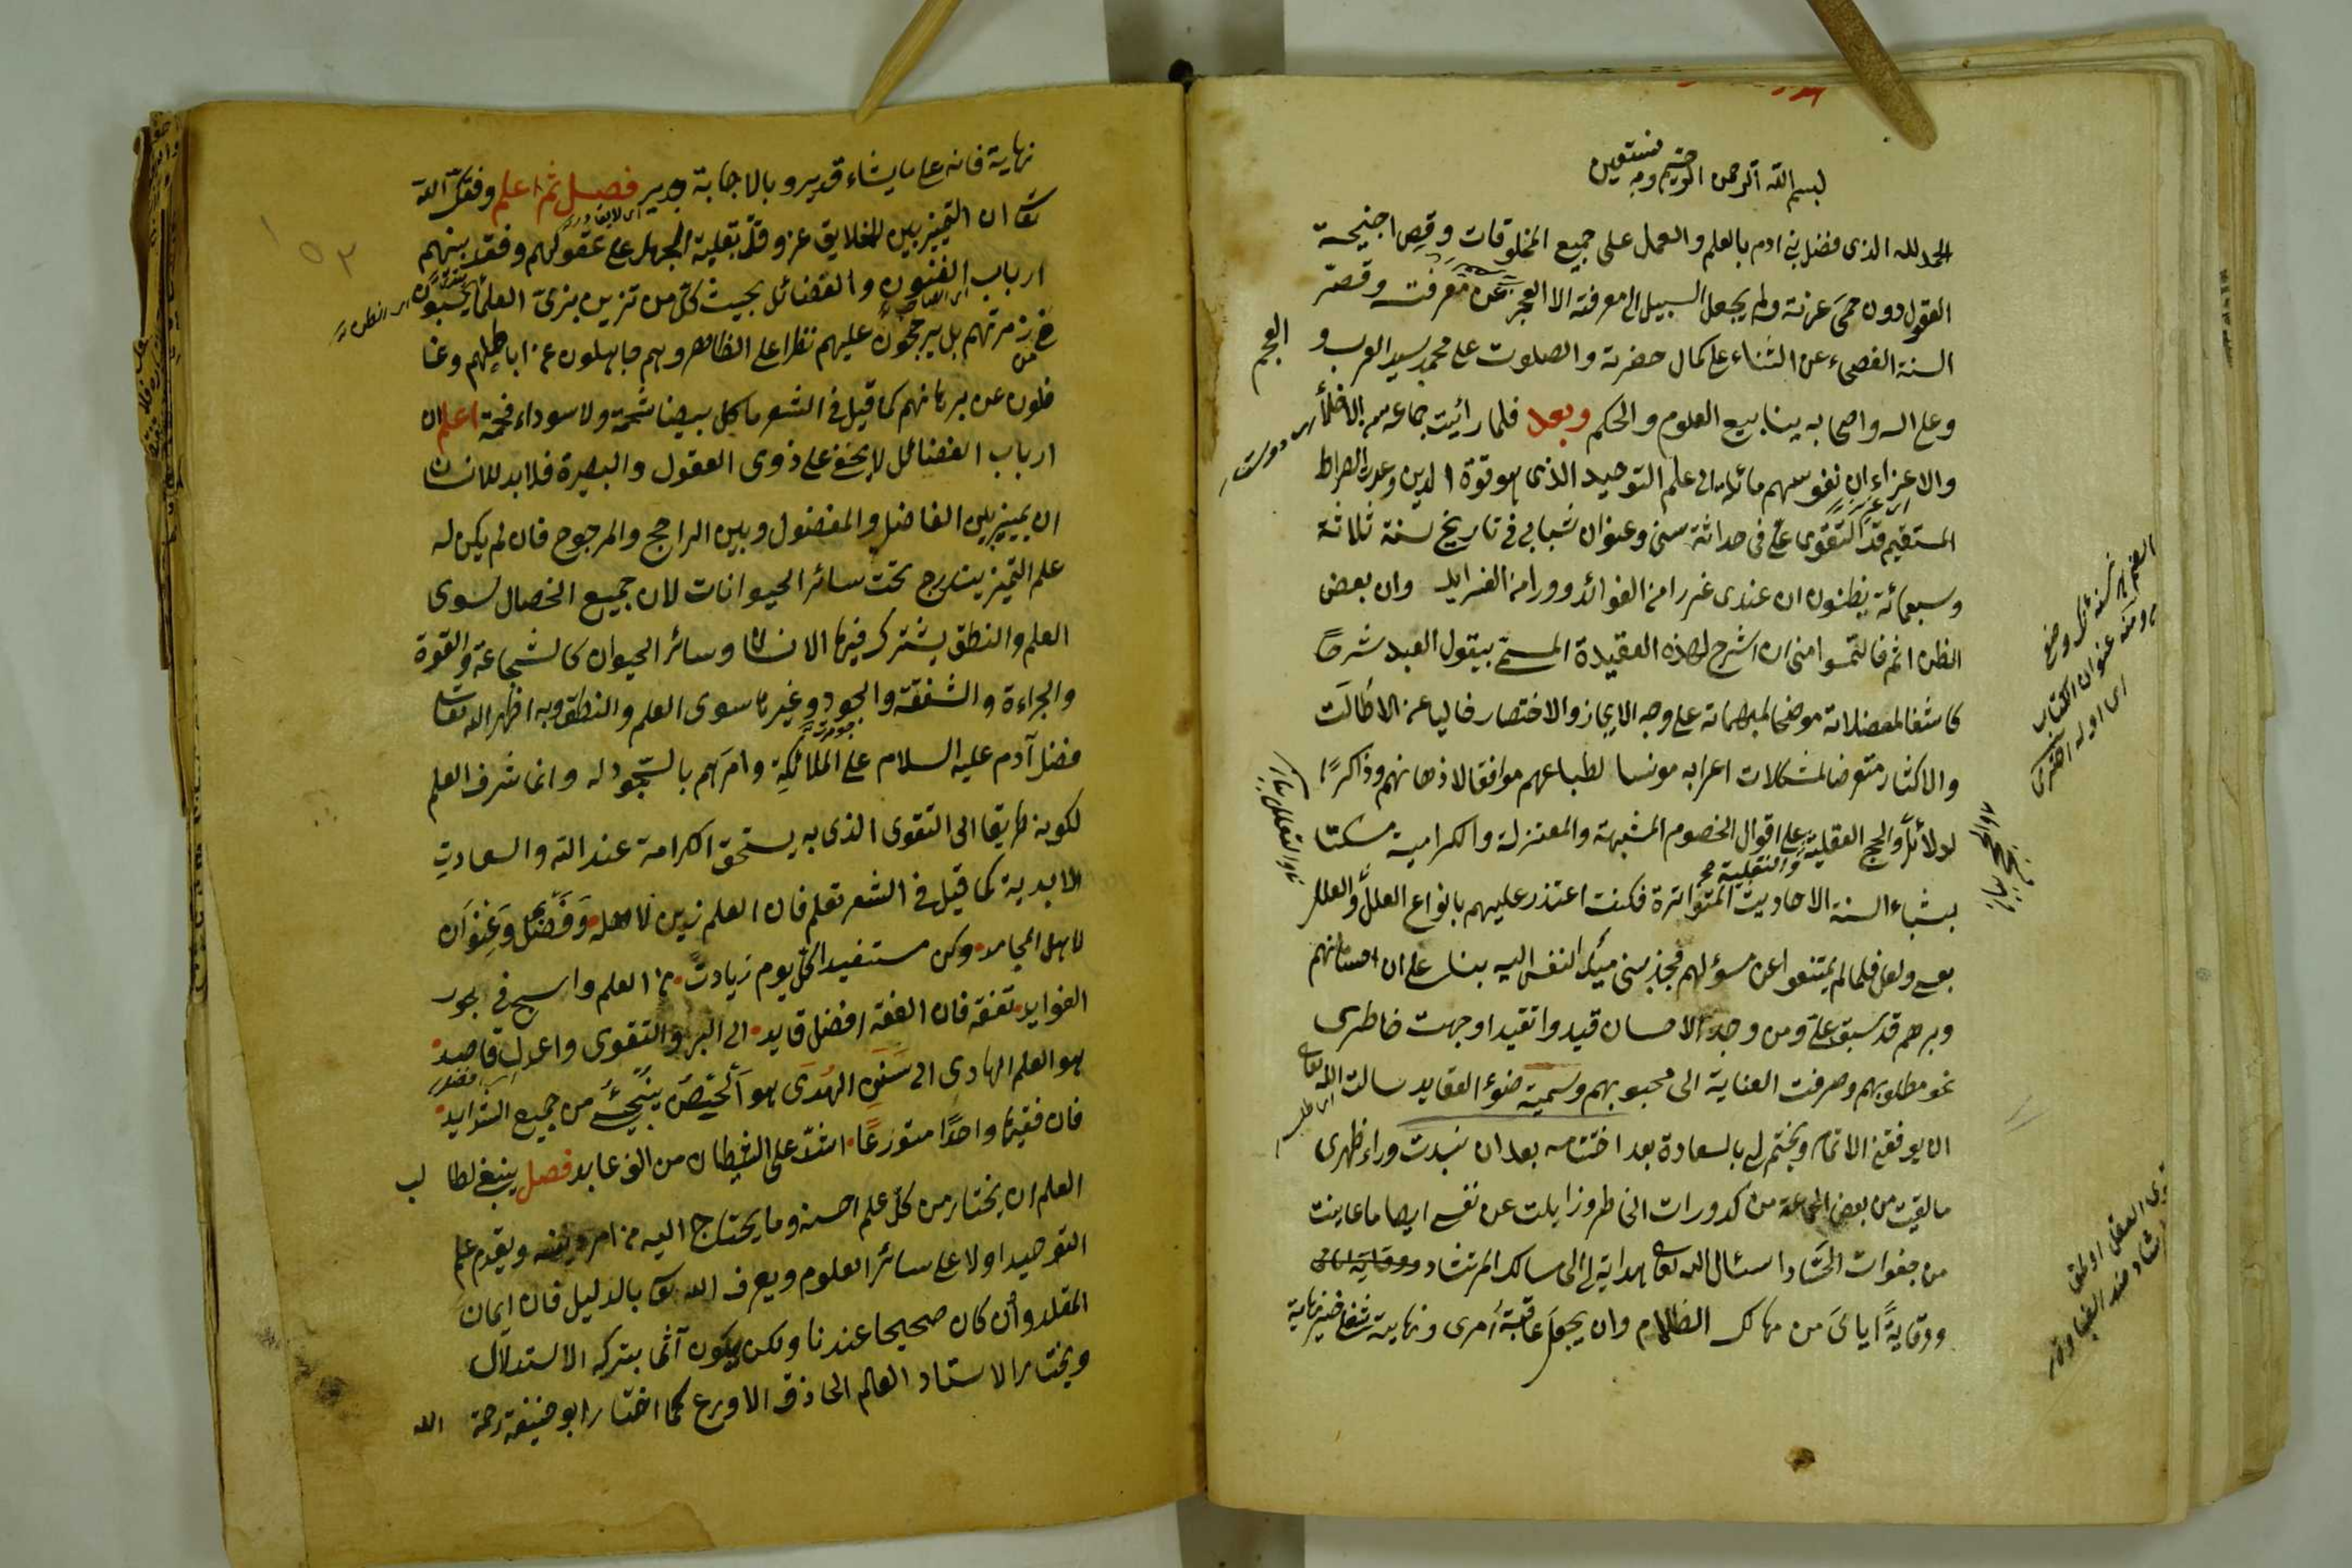 بسم الله الرحمن الرحيم وبه نستعين
الحمد لله الذى فضل بنى ادم بالعلم والعمل على جميع المخلوقات وقص اجنحة
العقول دون حمى عزته ولم يجعل السبيل الى معرفته الا العجز عن معرفته وقصر
السنة الفصحاء عن الثناء على كمال حضرته والصلوت على محمد سيد العرب و
العجم
وعلى اله واصحابه ينابيع العلوم والحكم وبعد فلما رائيت جماعة من الاخلاء
والاعزاء ان نفوسهم مائلة الى علم التوحيد الذى هو قوة الدين وعدة الصراط
المستقيم قد التقوى على فى حداثة سنى وعنوان شبابى فى تاريخ سنة ثلاثة
وسبعمائة يظنون ان عندى غررا من الفوائد ودررا من الفرايد وان بعض
الظن اثم فالتمسوا منى ان اشرح لهذه العقيدة المسمى بيقول العبد شرحًا
كاشفا لمعضلاته موضحا لمبهماته على وجه الايجاز والاختصار خاليا عن الاطالت
والاكثار متعرضا لمشكلات اعرابه مونسا لطباعهم موافقا لاذهانهم وذاكرًا
لدلائل والحجج العقلية والنقلية على اقوال الخصوم المشبهة والمعتزلة والكرامية متمسكا
السنة الاحاديث المتواترة فكنت اعتذر عليهم بانواع العلل والعلل
بعسى ولعل فلما لم يمتنعوا عن مسؤلهم فجذبنى ميل النفس اليه بناء على ان احسانهم
وبرهم قد سبق على ومن وجد الاحسان قيدا تقيد اوجهت خاطرى
نحو مطلوبهم وصرفت العناية الى محبوبهم وسميته ضوء العقايد سالت الله تعالى
ان يوفقنى الاتمام ويختم لى بالسعادة بعد اختتامه بعد ان نبذت وراء ظهرى
ما لقيت من بعض الجماعة من كدورات الخاطر وزايلت عن نفسى ايضا ما عاينت
من جفوات الحساد اسئال الله تعالى هداية لى الى مسالك الرشاد
ووقايةً اياى من مهالك الظلام وان يجعل عاقبة أمرى ونهايته شفا خير نهاية
نهاية فانه على ما يشاء قدير وبالاجابة جدير فصل ثم اعلم وفقك الله
تعالى ان التميز بين الخلايق عز وقل بغلبة الجهل على عقولهم وفقد بينهم
ارباب الفنون والفضائل بحيث كل من تزين بزى العلماء يحسبون
فى زمرتهم بل يرجحون عليهم نظرا على الظاهر وهم جاهلون عن اباطيلهم وغا
فلون عن برهانهم كما قيل فى الشعر ما كل بيضا شحمة ولا سوداء فحمة اعلم ان
ارباب الفضائل لا يخفى على ذوى العقول والبصيرة فلا بد للانسان
ان يميز بين الفاضل والمفضول وبين الراجح والمرجوح فان لم يكن له
علم التميز يندرج تحت سائر الحيوانات لان جميع الخصال سوى
العلم والنطق يشترك فيها الانسان وسائر الحيوان كالشجاعة والقوة
والجراءة والشفقة والجود وغيرها سوى العلم والنطق وبه اظهر الله تعالى
فضل آدم عليه السلام على الملائكة وامرهم بالسجود له وانما شرف العلم
لكونه طريقا الى التقوى الذى به يستحق الكرامة عند الله والسعادت
الابدية كما قيل فى الشعر تعلم فان العلم زين لاهله وَفَضْل وَعنوَان
لاهل المحامد وكن مستفيدا كل يوم زيادت من العلم واسبح فى بحور
الفوايد تفقه فان الفقه افضل قايد الى البر والتقوى واعدل قاصد
هو العلم الهادى الى سَنَن الهُدَى هو الحِصن ينجى من جميع الشدايد
فان فقيهًا واحدًا متورعًا اشد على الشيطان من الف عابد فصل ينبغى لطا لب
العلم ان يختار من كل علم احسنه وما يحتاج اليه من امر دينه ويقدم علم
التوحيد اولا على سائر العلوم ويعرف الله تعالى بالدليل فان ايمان
المقلد وأن كان صحيحا عندنا ولكن يكون آثما بتركه الاستدلال
ويختار الاستاد العالم الحاذق الاورع كما اختار ابو حنيفة رحمة الله